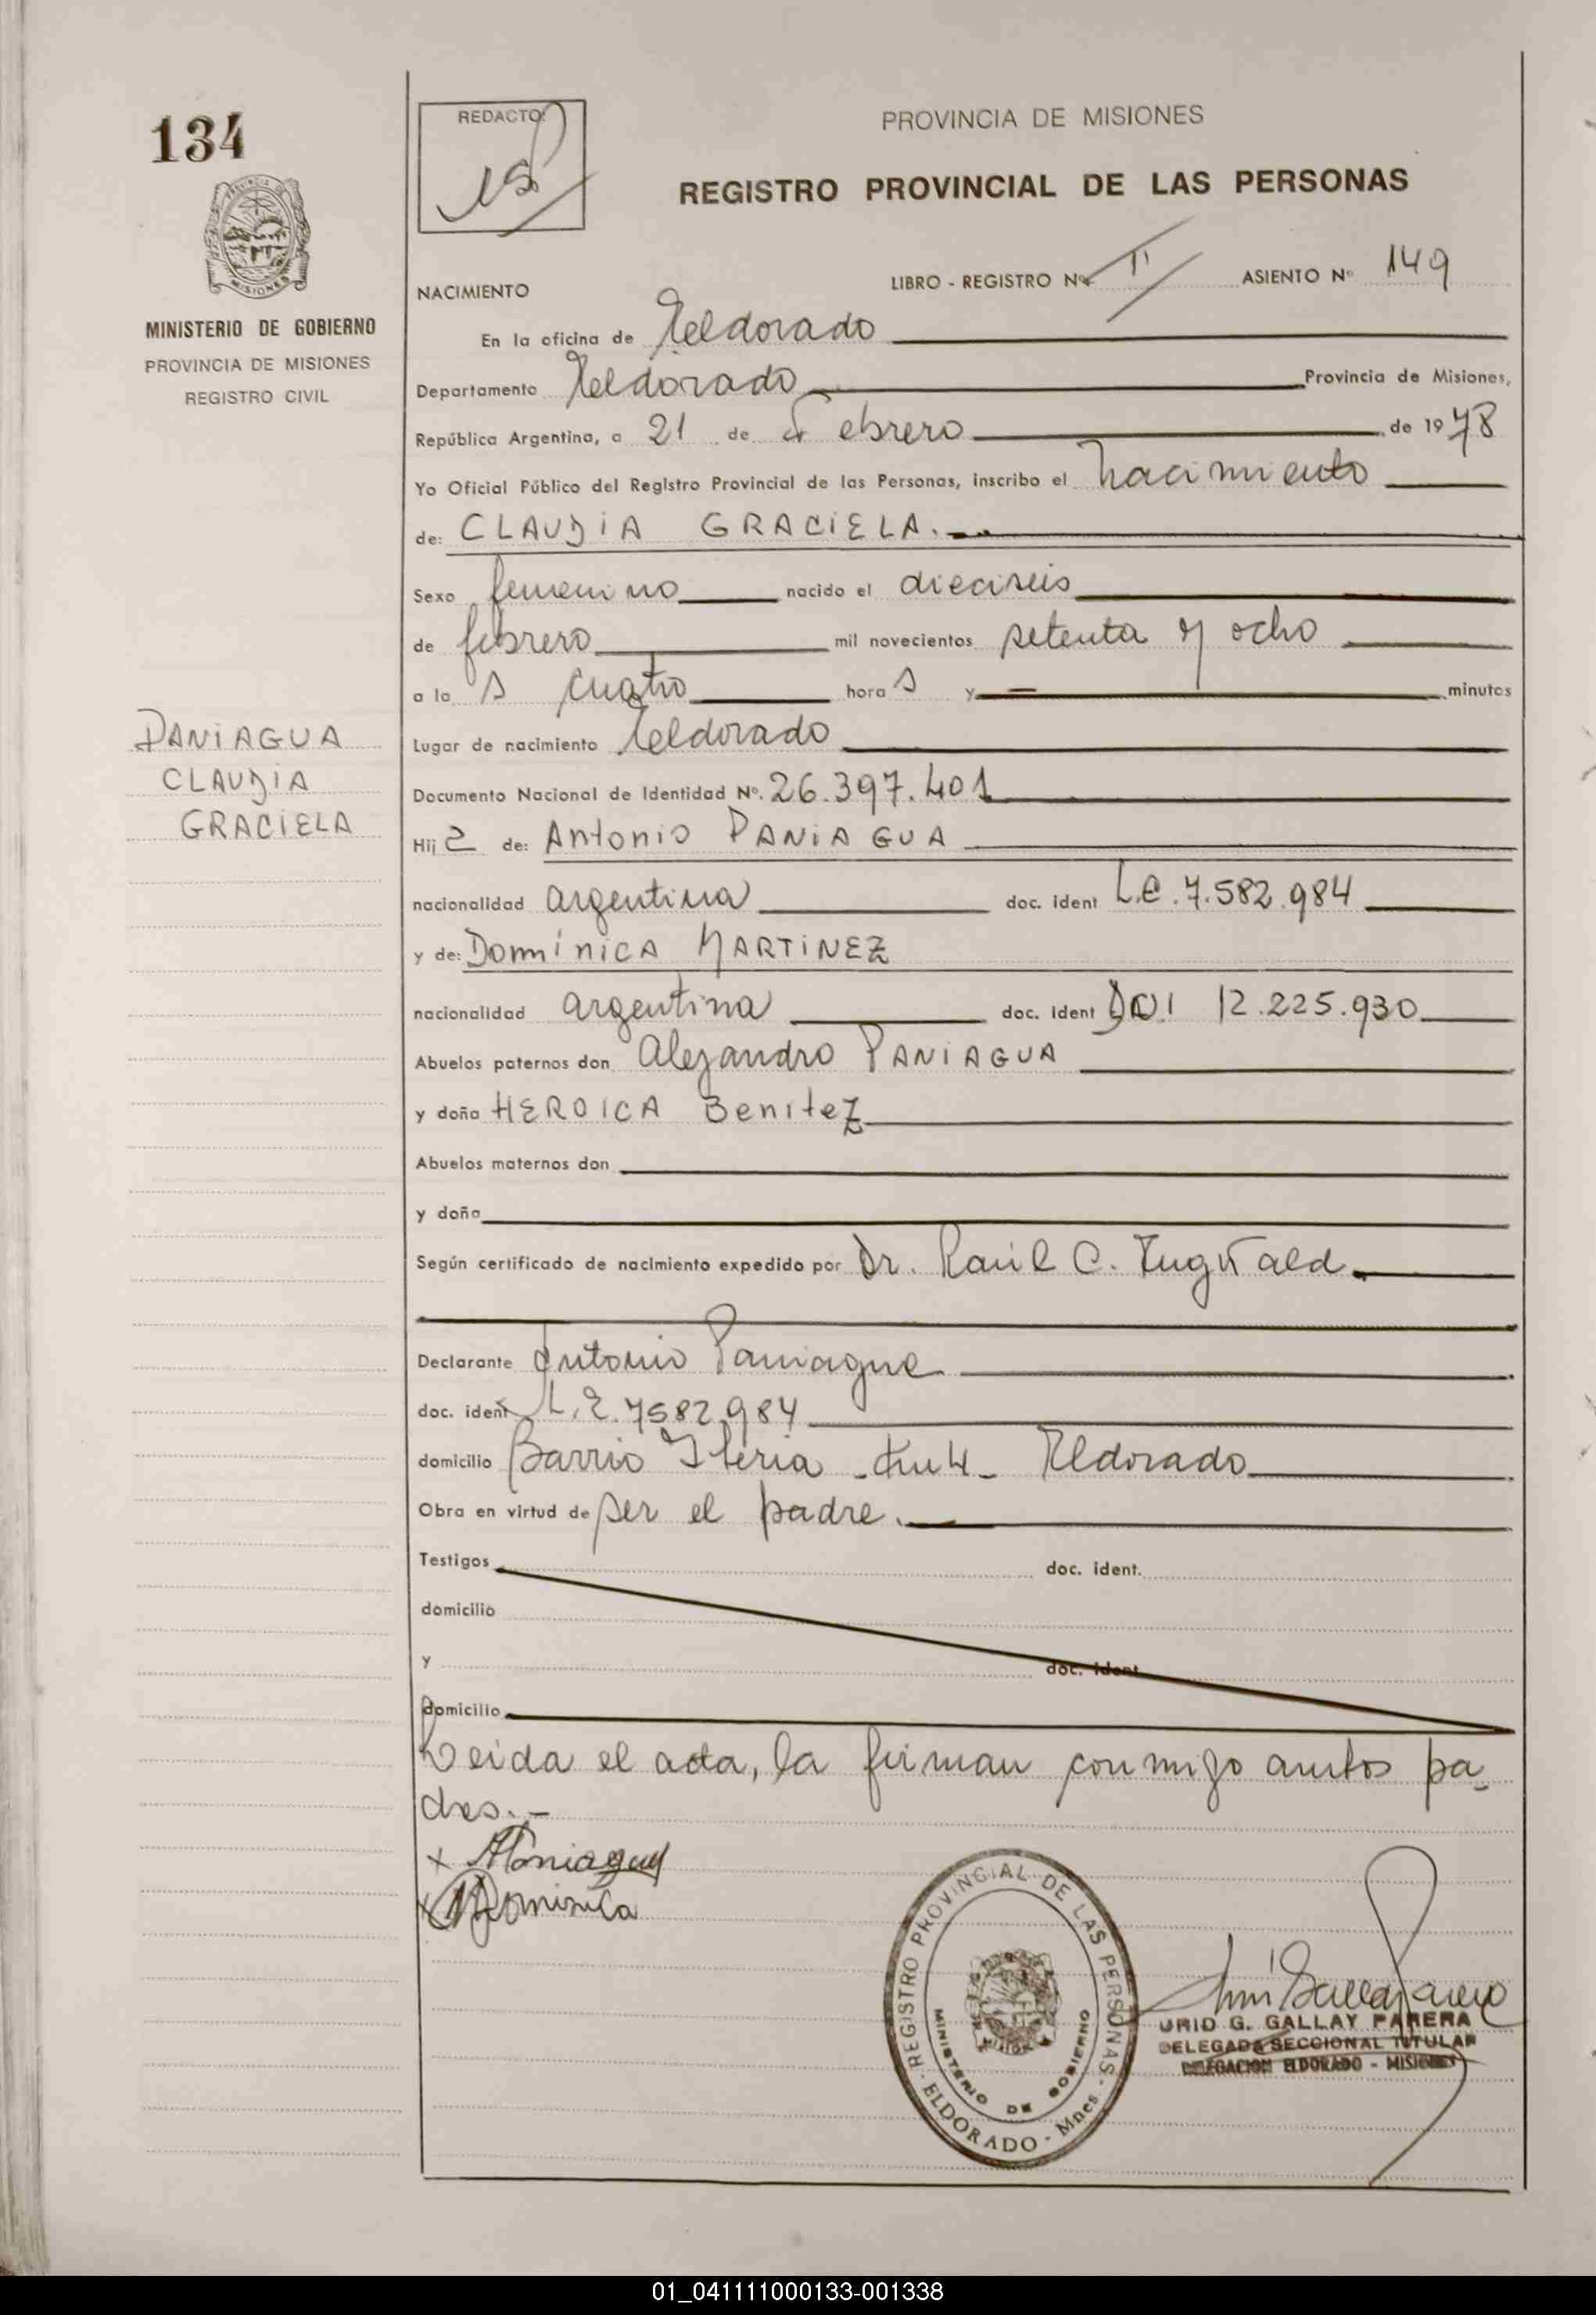 134
REDACTO:
PROVINCIA DE MISIONES
REGISTRO PROVINCIAL DE LAS PERSONAS
MISIONES
MINISTERIO DE GOBIERNO
PROVINCIA DE MISIONES
REGISTRO CIVIL
LIBRO - REGISTRO Nº ASIENTO Nº 149
NACIMIENTO
En la oficina de Eldorado
Departamento Eldorado Provincia de Misiones,
República Argentina, a 21 de Febrero de 1978
Yo Oficial Público del Registro Provincial de las Personas, inscribo el nacimiento
de: CLAUDIA GRACIELA.
Sexo femenino nacido el dieciseis
de febrero mil novecientos setenta y ocho
a la s cuatro hora s y — minutos
PANIAGUA
CLAUDIA
GRACIELA
Lugar de nacimiento Eldorado
Documento Nacional de Identidad Nº. 26.397.401
Hij a de: Antonio PANIAGUA
nacionalidad argentina doc. ident L.E. 7.582.984
y de: DOMINICA MARTINEZ
nacionalidad argentina doc. ident DNI 12.225.930
Abuelos paternos don Alejandro PANIAGUA
y doña HEROICA BeniteZ
Abuelos maternos don
y doña
Según certificado de nacimiento expedido por Dr. Raúl C.
Declarante Antonio Paniagua
doc. ident L.E. 7582.984
domicilio Barrio Eldorado
Obra en virtud de ser el padre.
Testigos doc. ident.
domicilio
y doc. ident
domicilio
Leida el acta, la firman conmigo ambos pa-
dres.-
x APaniagua
x Dominica
REGISTRO PROVINCIAL DE LAS PERSONAS - ELDORADO - Mnes
MINISTERIO DE GOBIERNO
URID G. GALLAY PARERA
DELEGADA SECCIONAL TITULAR
DELEGACION ELDORADO - MISIONES
01_041111000133-001338